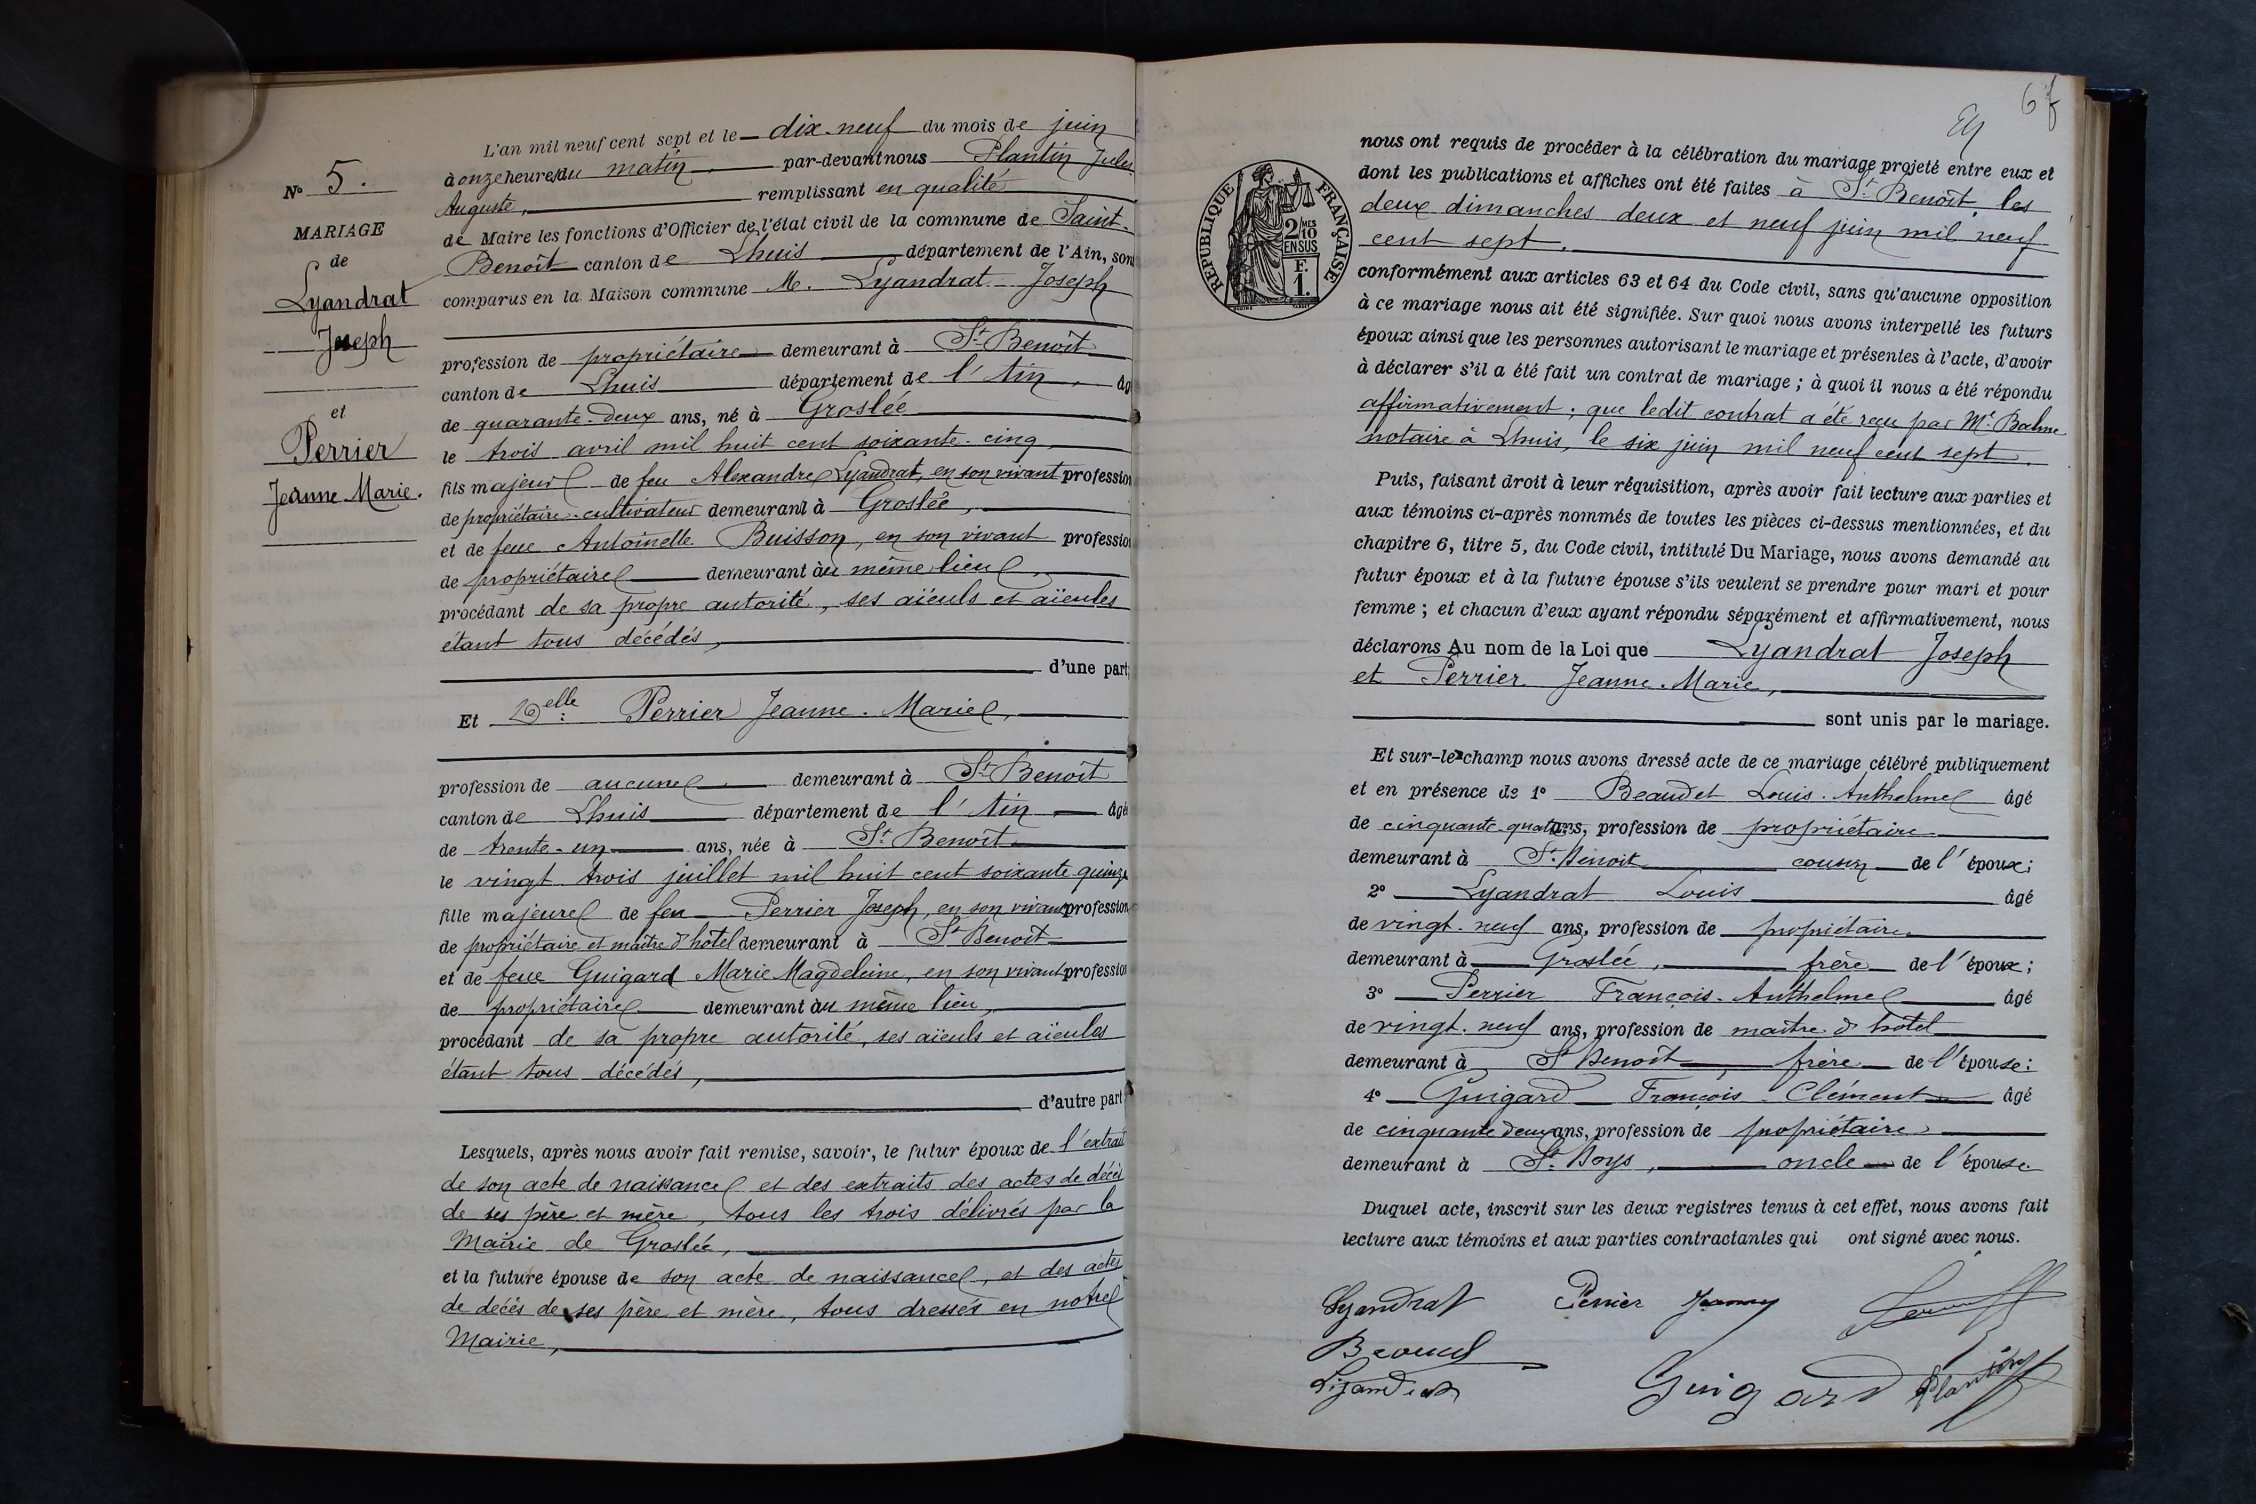 L'an mil neuf cent sept et le dix-neuf du mois de juin
à onze heures du matin par-devant nous Plantin Jules
Auguste, remplissant en qualité
de Maire les fonctions d'Officier de l'état civil de la commune de Saint-
Benoît canton de Lhuis département de l'Ain, sont
comparus en la Maison commune M. Lyandrat Joseph
N° 5.
MARIAGE
de
Lyandrat
Joseph
et
Perrier
Jeanne-Marie.
profession de propriétaire demeurant à St Benoît
canton de Lhuis département de l'Ain, âgé
de quarante-deux ans, né à Groslée
le trois avril mil huit cent soixante-cinq,
fils majeur de feu Alexandre Lyandrat, en son vivant profession
de propriétaire-cultivateur demeurant à Groslée,
et de feue Antoinette Buisson, en son vivant profession
de propriétaire demeurant au même lieu,
procédant de sa propre autorité, ses aïeuls et aïeules
étant tous décédés,
d'une part;
Et Delle Perrier Jeanne-Marie,
profession de aucune demeurant à St Benoît
canton de Lhuis département de l'Ain âgée
de trente-un ans, née à St Benoît
le vingt-trois juillet mil huit cent soixante quinze
fille majeure de feu Perrier Joseph, en son vivant profession
de propriétaire et maître d'hôtel demeurant à St Benoît
et de feue Guigard Marie Magdeleine, en son vivant profession
de propriétaire demeurant au même lieu,
procédant de sa propre autorité, ses aïeuls et aïeules
étant tous décédés,
d'autre part;
Lesquels, après nous avoir fait remise, savoir, le futur époux de l'extrait
de son acte de naissance et des extraits des actes de décès
de ses père et mère, tous les trois délivrés par la
Mairie de Groslée,
et la future épouse de son acte de naissance, et des actes
de décès de ses père et mère, tous dressés en notre
Mairie,
REPUBLIQUE FRANÇAISE
2/10 MES
EN SUS
F.
1.
nous ont requis de procéder à la célébration du mariage projeté entre eux et
dont les publications et affiches ont été faites à St Benoît, les
deux dimanches deux et neuf juin mil neuf
cent sept.
conformément aux articles 63 et 64 du Code civil, sans qu'aucune opposition
à ce mariage nous ait été signifiée. Sur quoi nous avons interpellé les futurs
époux ainsi que les personnes autorisant le mariage et présentes à l'acte, d'avoir
à déclarer s'il a été fait un contrat de mariage ; à quoi il nous a été répondu
affirmativement ; que ledit contrat a été reçu par Me Balme
notaire à Lhuis, le six juin mil neuf cent sept.
Puis, faisant droit à leur réquisition, après avoir fait lecture aux parties et
aux témoins ci-après nommés de toutes les pièces ci-dessus mentionnées, et du
chapitre 6, titre 5, du Code civil, intitulé Du Mariage, nous avons demandé au
futur époux et à la future épouse s'ils veulent se prendre pour mari et pour
femme ; et chacun d'eux ayant répondu séparément et affirmativement, nous
déclarons Au nom de la Loi que Lyandrat Joseph
et Perrier Jeanne-Marie,
sont unis par le mariage.
Et sur-le-champ nous avons dressé acte de ce mariage célébré publiquement
et en présence de 1° Beaudet Louis-Anthelme âgé
de cinquante-quatre ans, profession de propriétaire
demeurant à St Benoit cousin de l'époux ;
2° Lyandrat Louis âgé
de vingt-neuf ans, profession de propriétaire
demeurant à Groslée, frère de l'époux ;
3° Perrier François-Anthelme âgé
de vingt-neuf ans, profession de maître d'hôtel
demeurant à St Benoît, frère de l'épouse :
4° Guigard François-Clément âgé
de cinquante deux ans, profession de propriétaire
demeurant à St Boys, oncle de l'épouse.
Duquel acte, inscrit sur les deux registres tenus à cet effet, nous avons fait
lecture aux témoins et aux parties contractantes qui ont signé avec nous.
Lyandrat Perrier Jeanne
Guigard Plantin